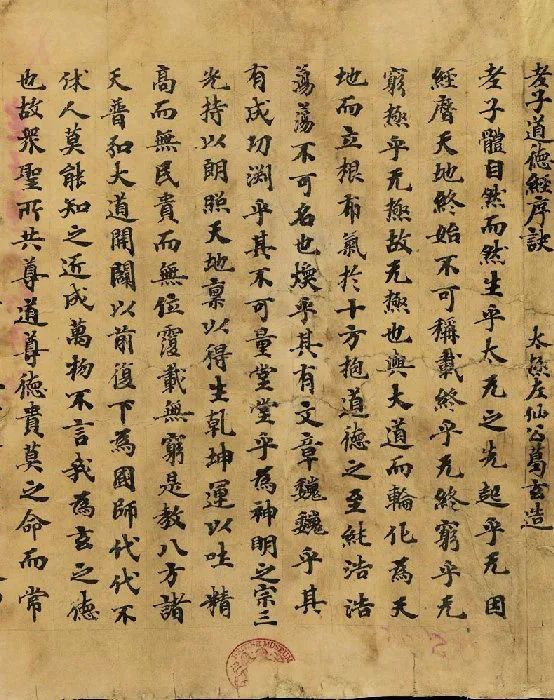 老子道德經序訣　太極左仙公葛玄造
老子體自然而然生乎太无之先起乎无因
經歷天地終始不可稱載終乎无終窮乎无
窮極乎无極故无極也與大道而輪化為天
地而立根布氣於十方抱道德之至純浩浩
蕩蕩不可名也煥乎其有文章巍巍乎其
有成功淵乎其不可量堂堂乎為神明之宗三
光持以朗照天地稟以得生乾坤運以吐精
高而無民貴而無位覆載無窮是教八方諸
天普弘大道開闢以前復下為國師代代不
休人莫能知之匠成萬物不言我為玄之德
也故眾聖所共尊道尊德貴莫之命而常
MUSEUM